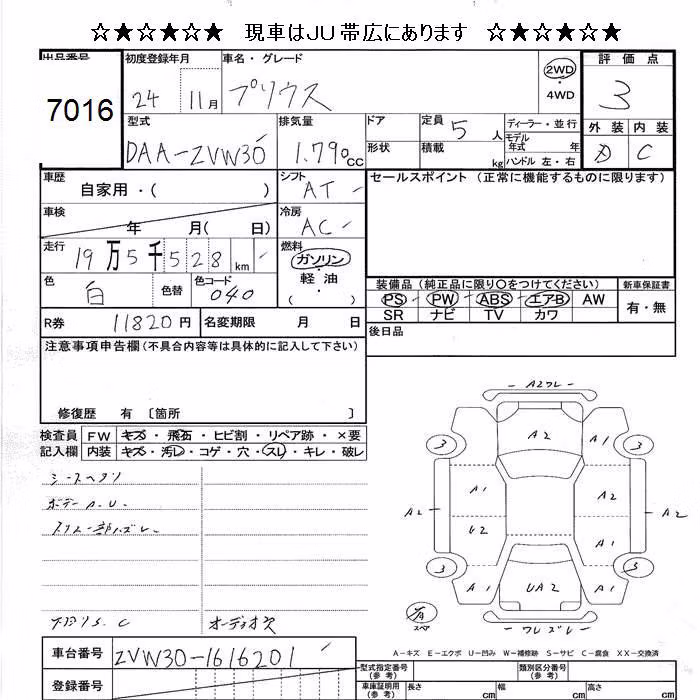 ☆★☆★☆★ 現車はJU帯広にあります ☆★☆★☆★
出品番号 初度登録年月 車名・グレード 評価点
7016 24 11月 プリウス 2WD・4WD 3
型式 排気量 ドア 定員 5人 ディーラー・並行 外装 内装
DAA-ZVW30 1.790cc 形状 積載 kg モデル年式 年 ハンドル 左・右 D C
車歴 自家用・( ) シフト AT セールスポイント (正常に機能するものに限ります)
車検 年 月( 日) 冷房 AC
走行 19万5千528km 燃料 ガソリン・軽油・( )
色 白 色替 色コード 040
装備品(純正品に限り〇をつけてください) 新車保証書
PS PW ABS エアB AW 有・無
SR ナビ TV カワ
R券 11820円 名変期限 月 日 後日品
注意事項申告欄(不具合内容等は具体的に記入して下さい)
修復歴 有 〔箇所 〕
検査員 FW キズ・飛石・ヒビ割・リペア跡・×要
記入欄 内装 キズ・汚レ・コゲ・穴・スレ・キレ・破レ
シートヘタリ
ボデーA.U.
下回りS.C オーディオ欠
A2ワレ
A2
3 A1 3
A1 A2
A2 A2
U2 A1
3 A1 UA2 A1 3
スペア
ワレズレ
A-キズ E-エクボ U-凹み W-補修跡 S-サビ C-腐食 XX-交換済
車台番号 ZVW30-1616201
型式指定番号(参考) 類別区分番号(参考)
登録番号 車庫証明用(参考) 長さ cm 幅 cm 高さ cm